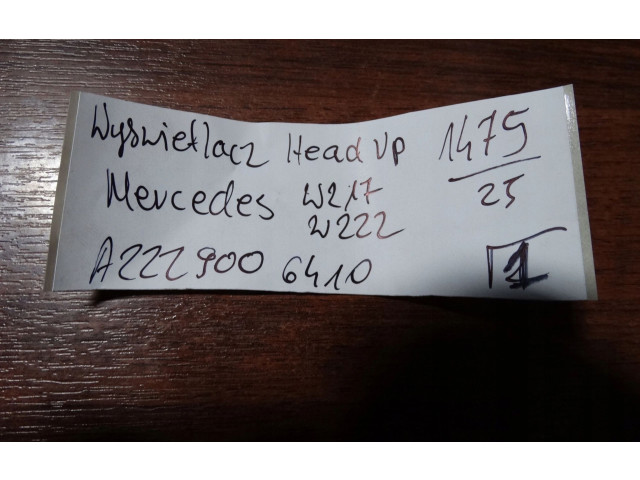 Wyswietlacz Head Up 1475
Mercedes W217 25
W222
A222 900 6410 1